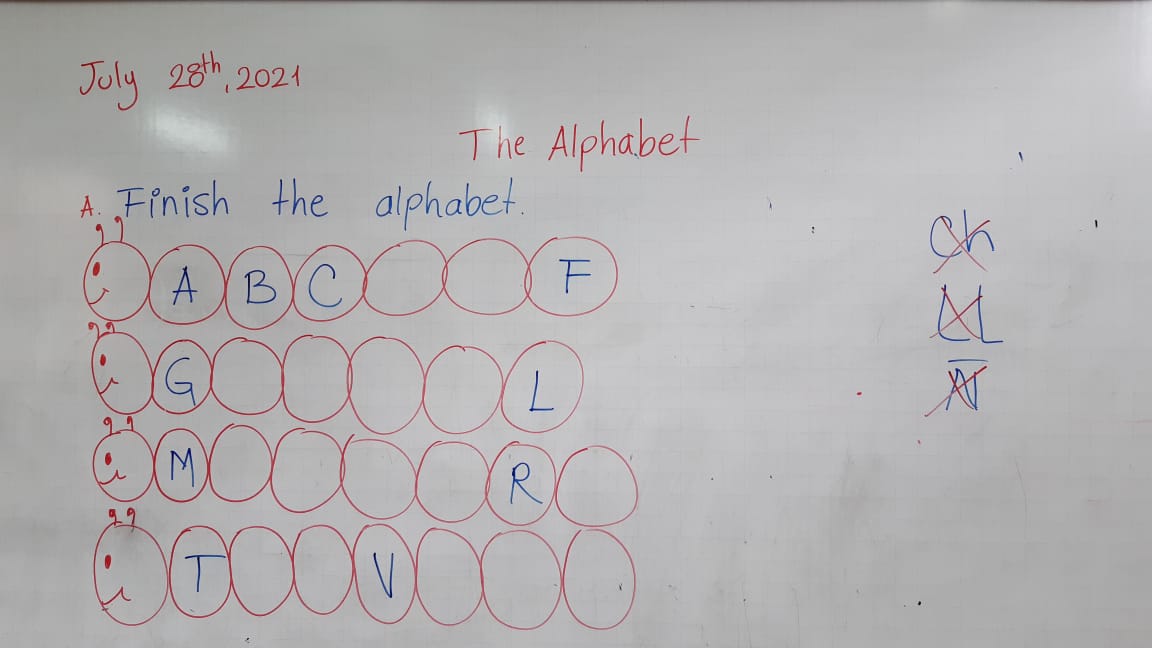 July 28th, 2021
The Alphabet
A. Finish the alphabet.
A B C F
G L
M R
T V
Ch
LL
Ñ